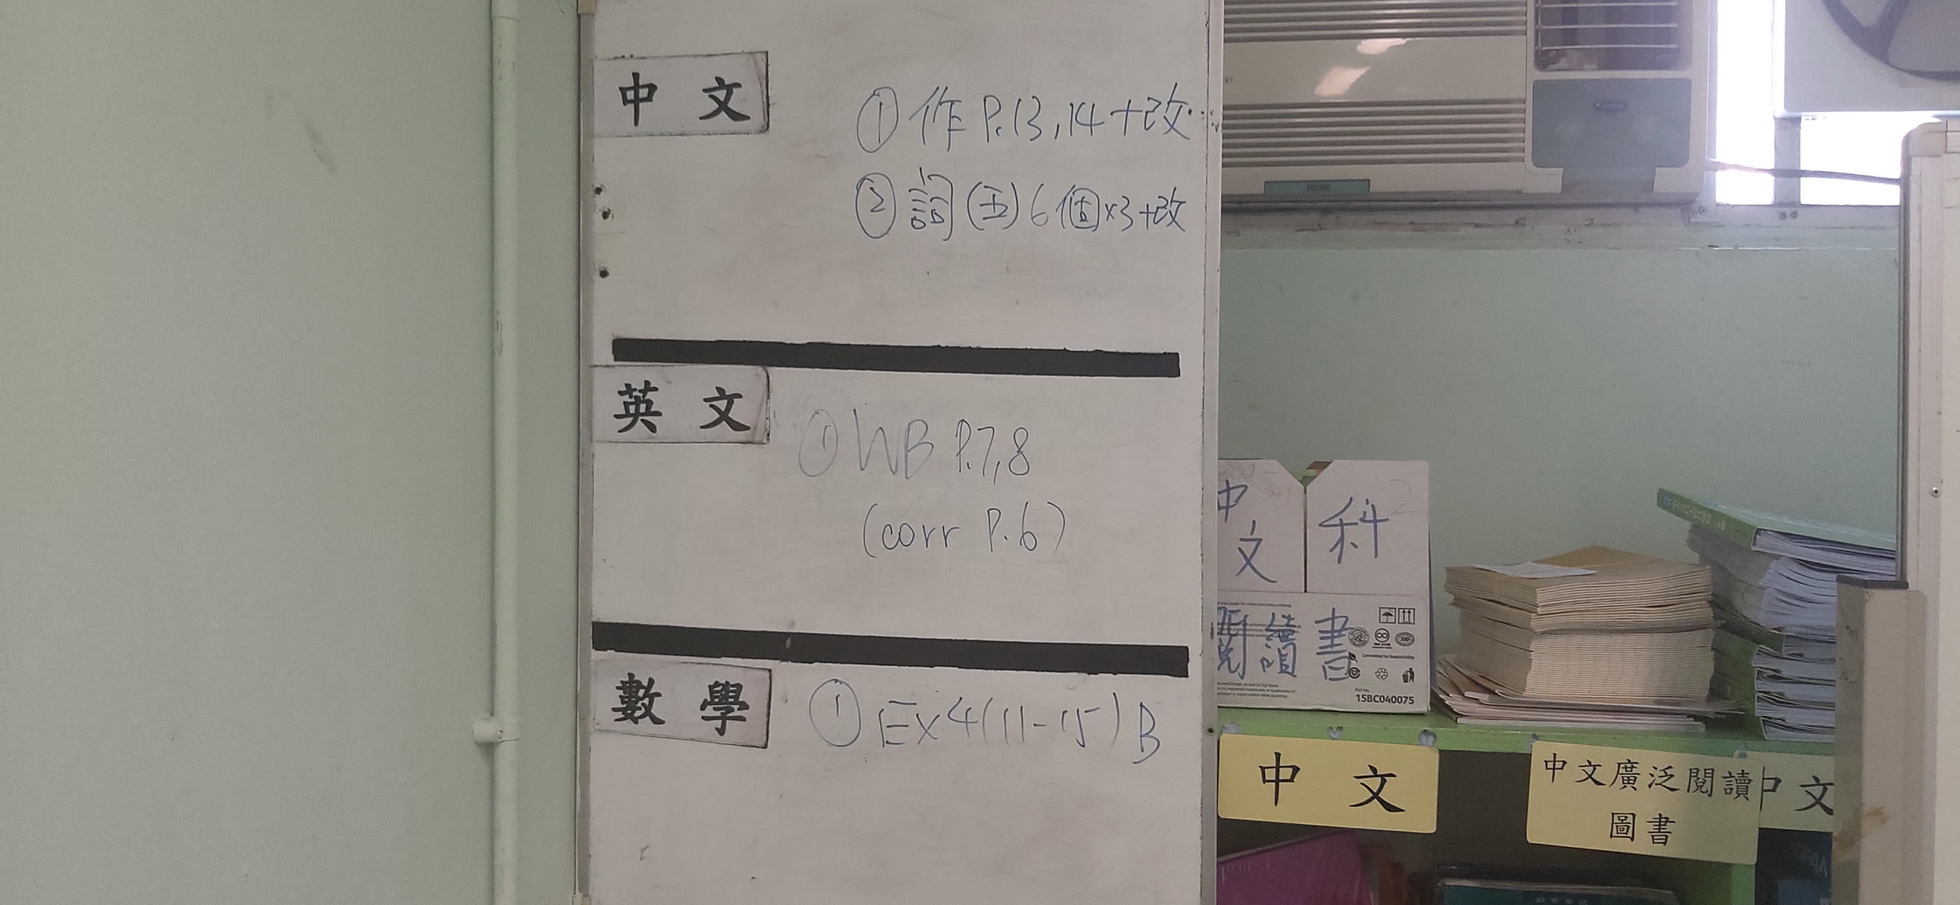 中文
① 作 P.13,14+改
② 詞(五)6個x3+改
英文
① WB P.7,8
(corr P.6)
數學
① Ex4(11-15)B
中文
科
閱讀書
15BC040075
中文
中文廣泛閱讀
圖書
中文